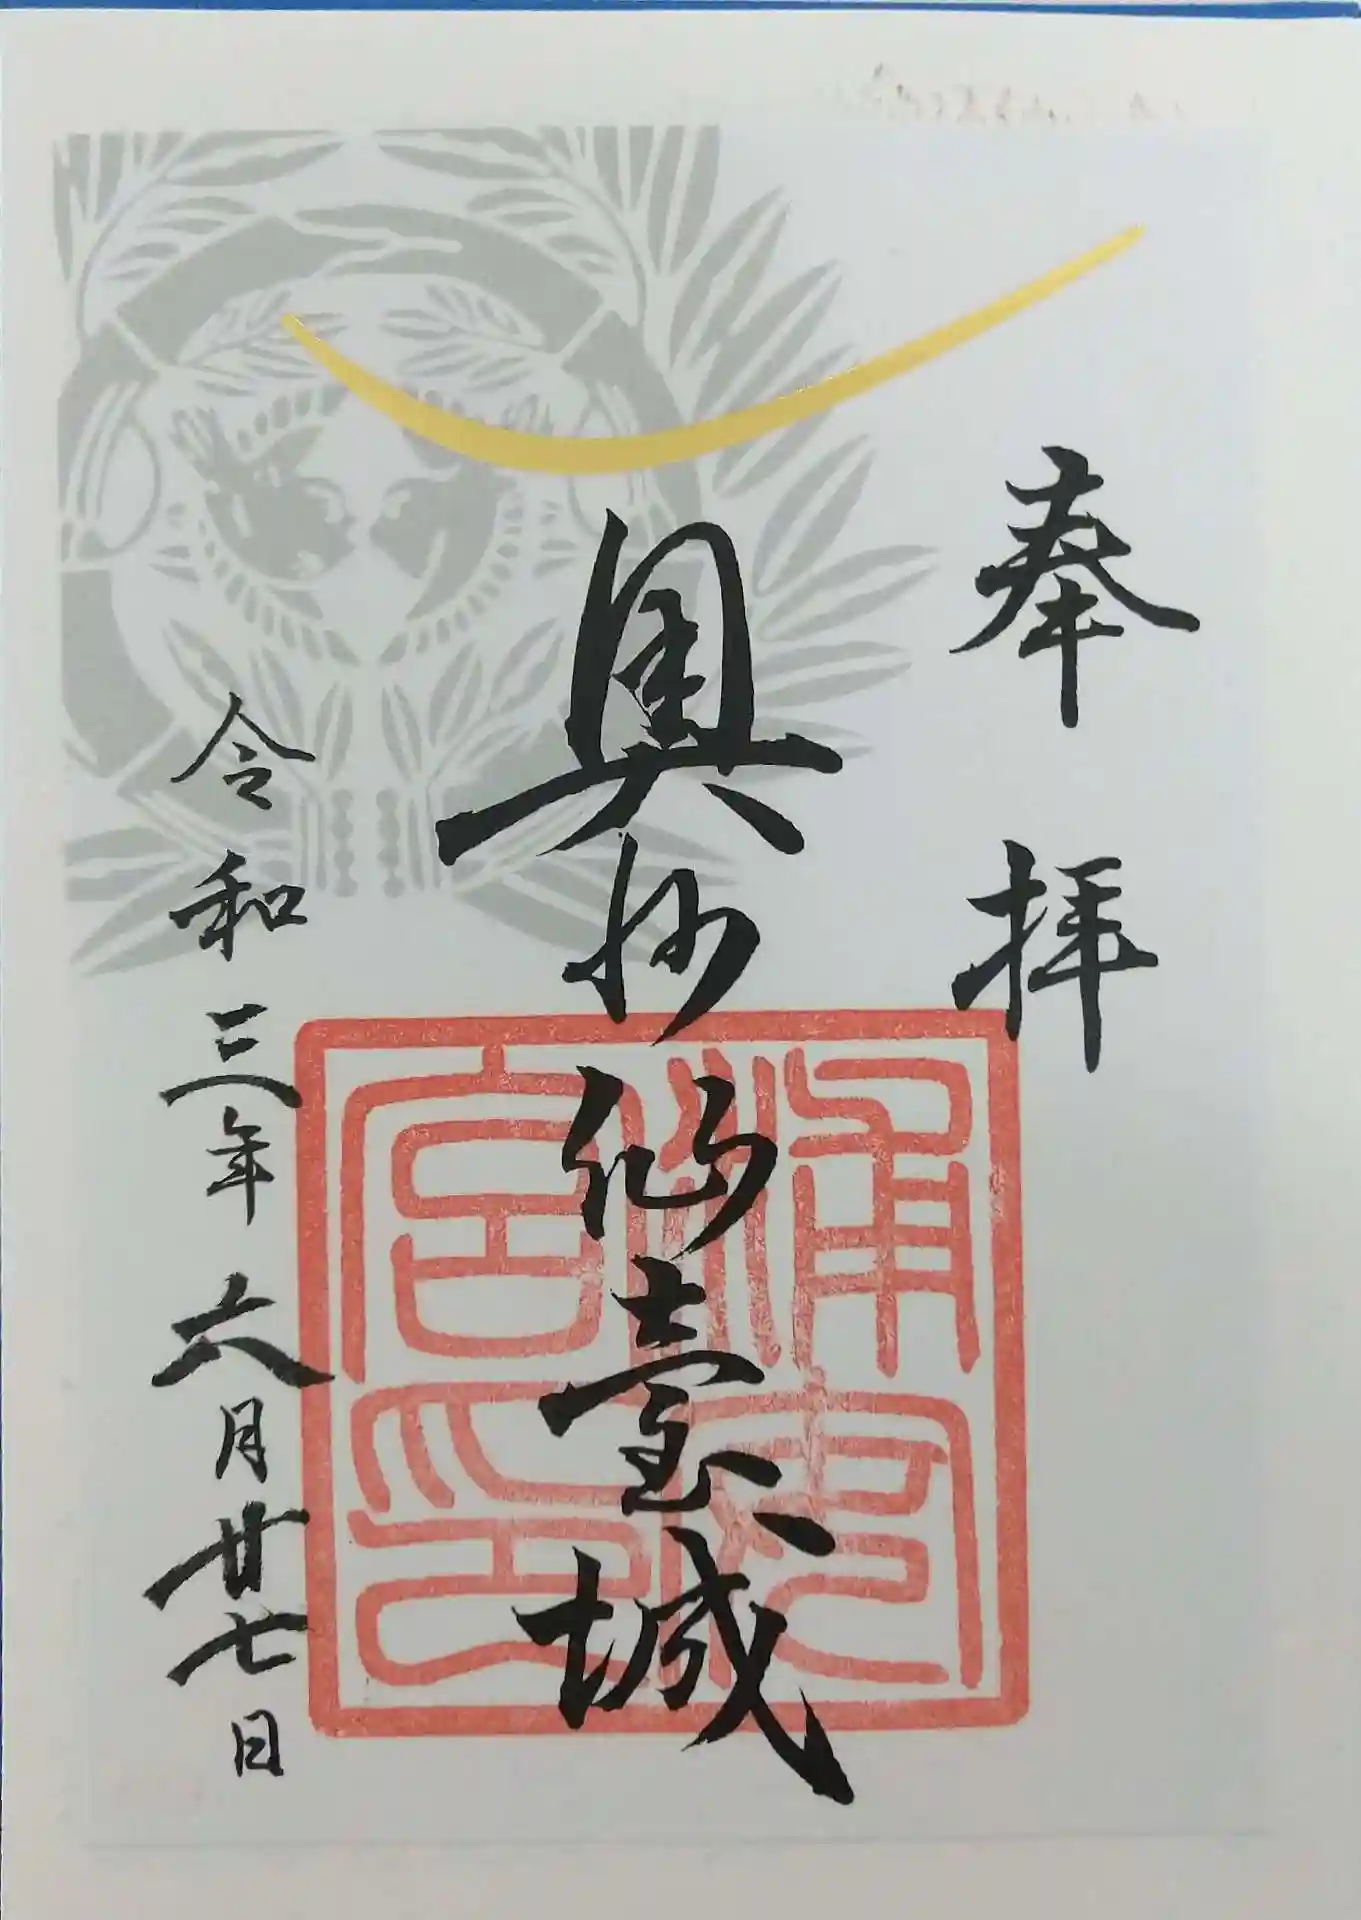 奉拝
奥州仙臺城
令和三年六月廿七日